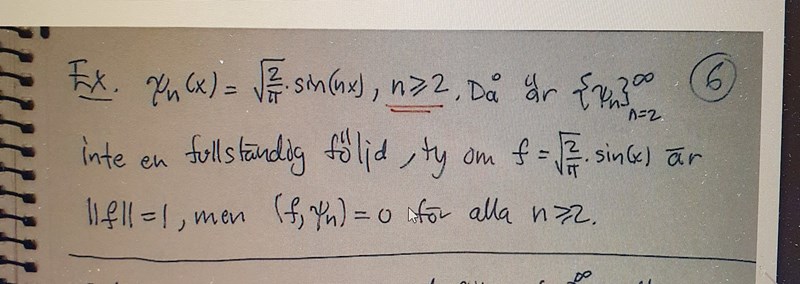 Ex. ψn(x) = √(2/π) · sin(nx), n≥2. Då är {ψn}∞n=2 (6)
inte en fullständig följd, ty om f = √(2/π) · sin(x) är
||f|| = 1, men (f, ψn) = 0 för alla n≥2.
∞